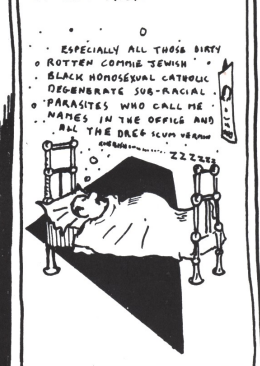 ESPECIALLY ALL THOSE DIRTY
ROTTEN COMMIE JEWISH
BLACK HOMOSEXUAL CATHOLIC
DEGENERATE SUB-RACIAL
PARASITES WHO CALL ME
NAMES IN THE OFFICE AND
ALL THE DREG SCUM VERMIN
RUBBISH
ZZZZZZ